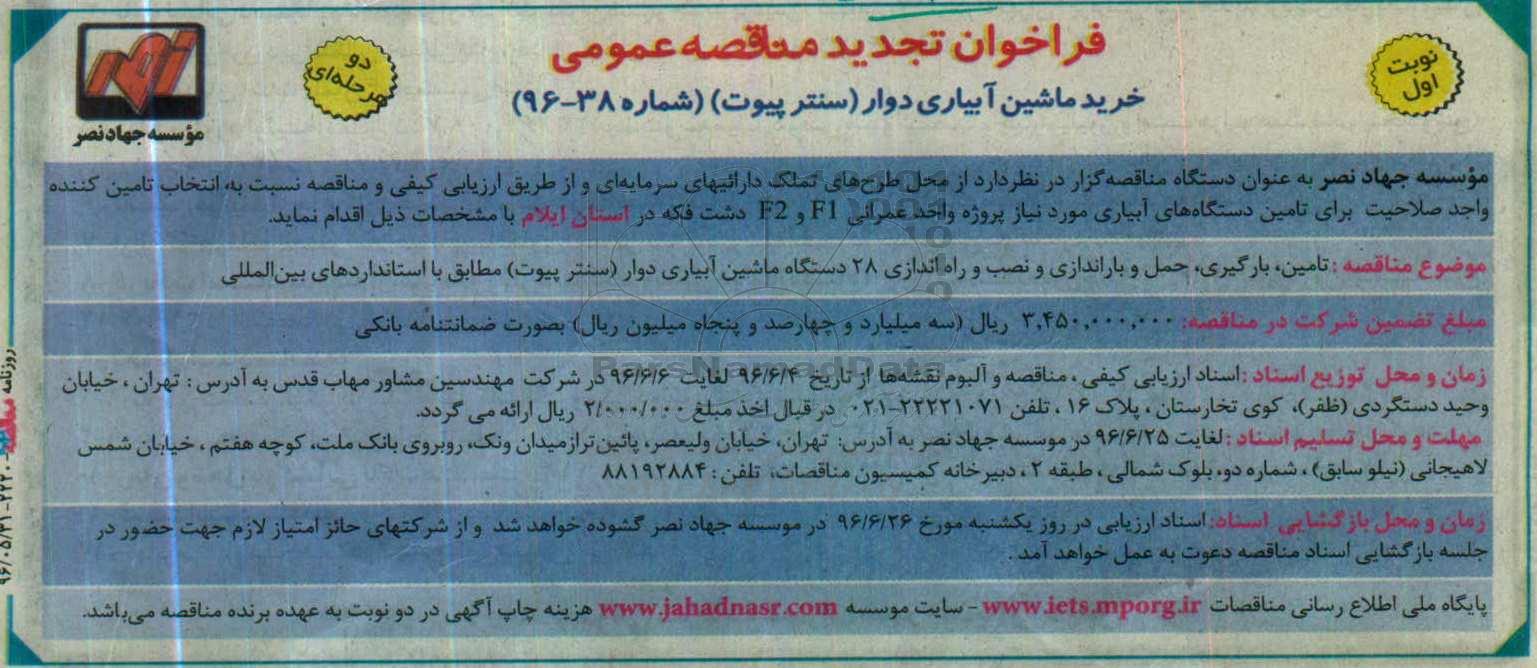 نوبت
اول
فراخوان تجدید مناقصه عمومی
خرید ماشین آبیاری دوار (سنتر پیوت) (شماره ۳۸-۹۶)
دو
مرحله‌ای
نصر
مؤسسه جهاد نصر
مؤسسه جهاد نصر به عنوان دستگاه مناقصه‌گزار در نظر دارد از محل طرح‌های تملک دارائیهای سرمایه‌ای و از طریق ارزیابی کیفی و مناقصه نسبت به، انتخاب تامین کننده
واجد صلاحیت برای تامین دستگاه‌های آبیاری مورد نیاز پروژه واحد عمرانی F1 و F2 دشت فکه در استان ایلام با مشخصات ذیل اقدام نماید.
موضوع مناقصه : تامین، بارگیری، حمل و باراندازی و نصب و راه اندازی ۲۸ دستگاه ماشین آبیاری دوار (سنتر پیوت) مطابق با استانداردهای بین‌المللی
مبلغ تضمین شرکت در مناقصه: ۳,۴۵۰,۰۰۰,۰۰۰ ریال (سه میلیارد و چهارصد و پنجاه میلیون ریال) بصورت ضمانتنامه بانکی
زمان و محل توزیع اسناد : اسناد ارزیابی کیفی ، مناقصه و آلبوم نقشه‌ها از تاریخ ۹۶/۶/۴ لغایت ۹۶/۶/۶ در شرکت مهندسین مشاور مهاب قدس به آدرس : تهران ، خیابان
وحید دستگردی (ظفر)، کوی تخارستان ، پلاک ۱۶ ، تلفن ۲۲۲۲۱۰۷۱-۰۲۱ در قبال اخذ مبلغ ۲/۰۰۰/۰۰۰ ریال ارائه می گردد.
مهلت و محل تسلیم اسناد : لغایت ۹۶/۶/۲۵ در موسسه جهاد نصر به آدرس: تهران، خیابان ولیعصر، پائین‌تر از میدان ونک، روبروی بانک ملت، کوچه هفتم ، خیابان شمس
لاهیجانی (نیلو سابق) ، شماره دو، بلوک شمالی ، طبقه ۲ ، دبیرخانه کمیسیون مناقصات، تلفن : ۸۸۱۹۲۸۸۴
زمان و محل بازگشایی اسناد: اسناد ارزیابی در روز یکشنبه مورخ ۹۶/۶/۲۶ در موسسه جهاد نصر گشوده خواهد شد و از شرکتهای حائز امتیاز لازم جهت حضور در
جلسه بازگشایی اسناد مناقصه دعوت به عمل خواهد آمد .
پایگاه ملی اطلاع رسانی مناقصات www.iets.mporg.ir - سایت موسسه www.jahadnasr.com هزینه چاپ آگهی در دو نوبت به عهده برنده مناقصه می‌باشد.
ParsNamadData
روزنامه
۹۶/۰۵/۳۱